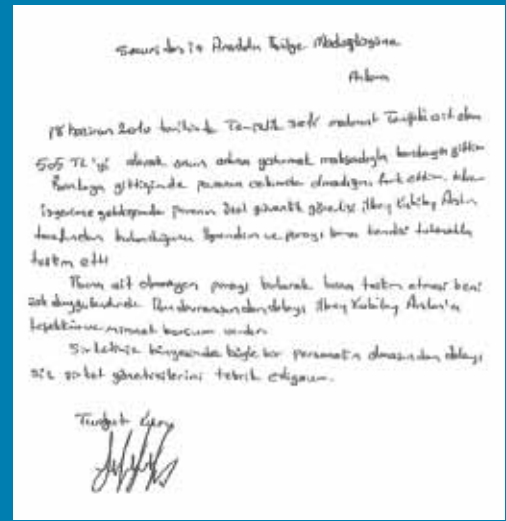 Securitas İç Anadolu Bölge Müdürlüğüne
Ankara
18 Haziran 2010 tarihinde Temizlik Şefi
505 TL'yi alarak onun adına yatırmak maksadıyla bankaya gittim
Bankaya gittiğimde paranın cebimde olmadığını fark ettim. tekrar
işyerime geldiğimde paranın özel güvenlik görevlisi İlbey Kubilay Arslan
tarafından bulunduğunu öğrendim ve parayı bana kendisi tutanakla
teslim etti
Bana ait olmayan parayı bularak bana teslim etmesi beni
çok duygulandırdı. Bu davranışından dolayı İlbey Kubilay Arslan'a
teşekkür ve minnet borcum vardır.
Şirketiniz bünyesinde böyle bir personelin olmasından dolayı
siz şirket yöneticilerini tebrik ediyorum.
Turgut